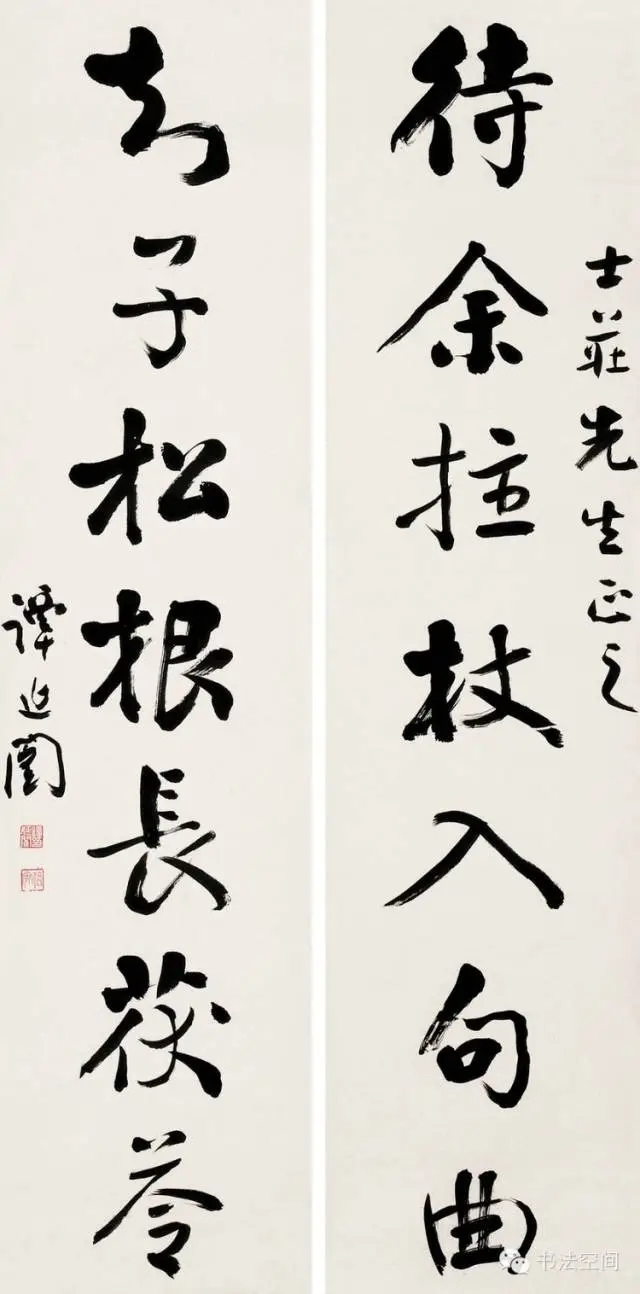 士莊先生正之
待余拄杖入句曲
知子松根長茯苓
譚延闓
书法空间